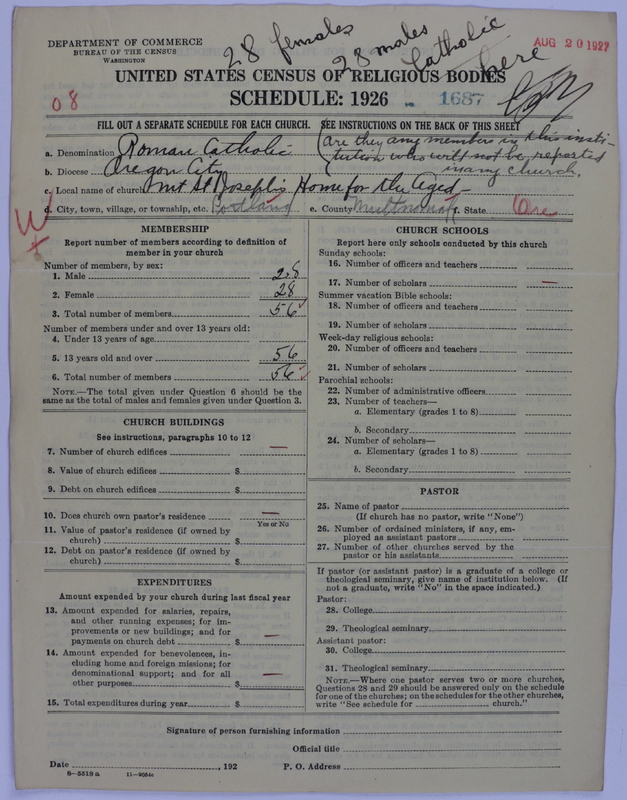 28 females
28 males
Catholic
here
DEPARTMENT OF COMMERCE
BUREAU OF THE CENSUS
WASHINGTON
AUG 20 1927
UNITED STATES CENSUS OF RELIGIOUS BODIES
SCHEDULE: 1926
1687
08
FILL OUT A SEPARATE SCHEDULE FOR EACH CHURCH. SEE INSTRUCTIONS ON THE BACK OF THIS SHEET
(Are they any members in this insti-
tution who will not be reported
in any church.
a. Denomination Roman Catholic
b. Diocese Oregon City
c. Local name of church Mt St Joseph's Home for the Aged
d. City, town, village, or township, etc. Portland e. County Multnomah f. State Ore
MEMBERSHIP
Report number of members according to definition of
member in your church
Number of members, by sex:
1. Male 28
2. Female 28
3. Total number of members 56
Number of members under and over 13 years old:
4. Under 13 years of age
5. 13 years old and over 56
6. Total number of members 56
NOTE.—The total given under Question 6 should be the
same as the total of males and females given under Question 3.
CHURCH BUILDINGS
See instructions, paragraphs 10 to 12
7. Number of church edifices —
8. Value of church edifices $
9. Debt on church edifices $
10. Does church own pastor's residence —
Yes or No
11. Value of pastor's residence (if owned by
church) $
12. Debt on pastor's residence (if owned by
church) $
EXPENDITURES
Amount expended by your church during last fiscal year
13. Amount expended for salaries, repairs,
and other running expenses; for im-
provements or new buildings; and for
payments on church debt $ —
14. Amount expended for benevolences, in-
cluding home and foreign missions; for
denominational support; and for all
other purposes $ —
15. Total expenditures during year $
CHURCH SCHOOLS
Report here only schools conducted by this church
Sunday schools:
16. Number of officers and teachers
17. Number of scholars —
Summer vacation Bible schools:
18. Number of officers and teachers
19. Number of scholars
Week-day religious schools:
20. Number of officers and teachers
21. Number of scholars
Parochial schools:
22. Number of administrative officers
23. Number of teachers—
a. Elementary (grades 1 to 8)
b. Secondary
24. Number of scholars—
a. Elementary (grades 1 to 8)
b. Secondary
PASTOR
25. Name of pastor
(If church has no pastor, write "None")
26. Number of ordained ministers, if any, em-
ployed as assistant pastors
27. Number of other churches served by the
pastor or his assistants
If pastor (or assistant pastor) is a graduate of a college or
theological seminary, give name of institution below. (If
not a graduate, write "No" in the space indicated.)
Pastor:
28. College
29. Theological seminary
Assistant pastor:
30. College
31. Theological seminary
NOTE.—Where one pastor serves two or more churches,
Questions 28 and 29 should be answered only on the schedule
for one of the churches; on the schedules for the other churches,
write "See schedule for church."
Signature of person furnishing information
Official title
Date , 192 P. O. Address
8—5519 a 11—9054c